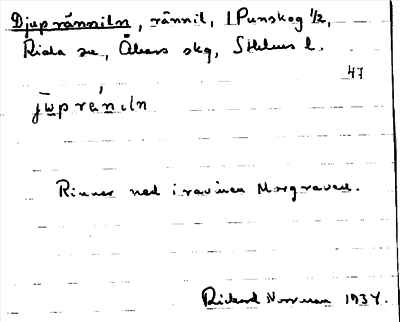 Djupränniln, rännil, 1 Punskog 1/2,
Rida sn, Åkers skg, Sthlms l.
47
jūp réniln
Rinner ned i ravinen Morgraven.
Rickard Norrman 1934.